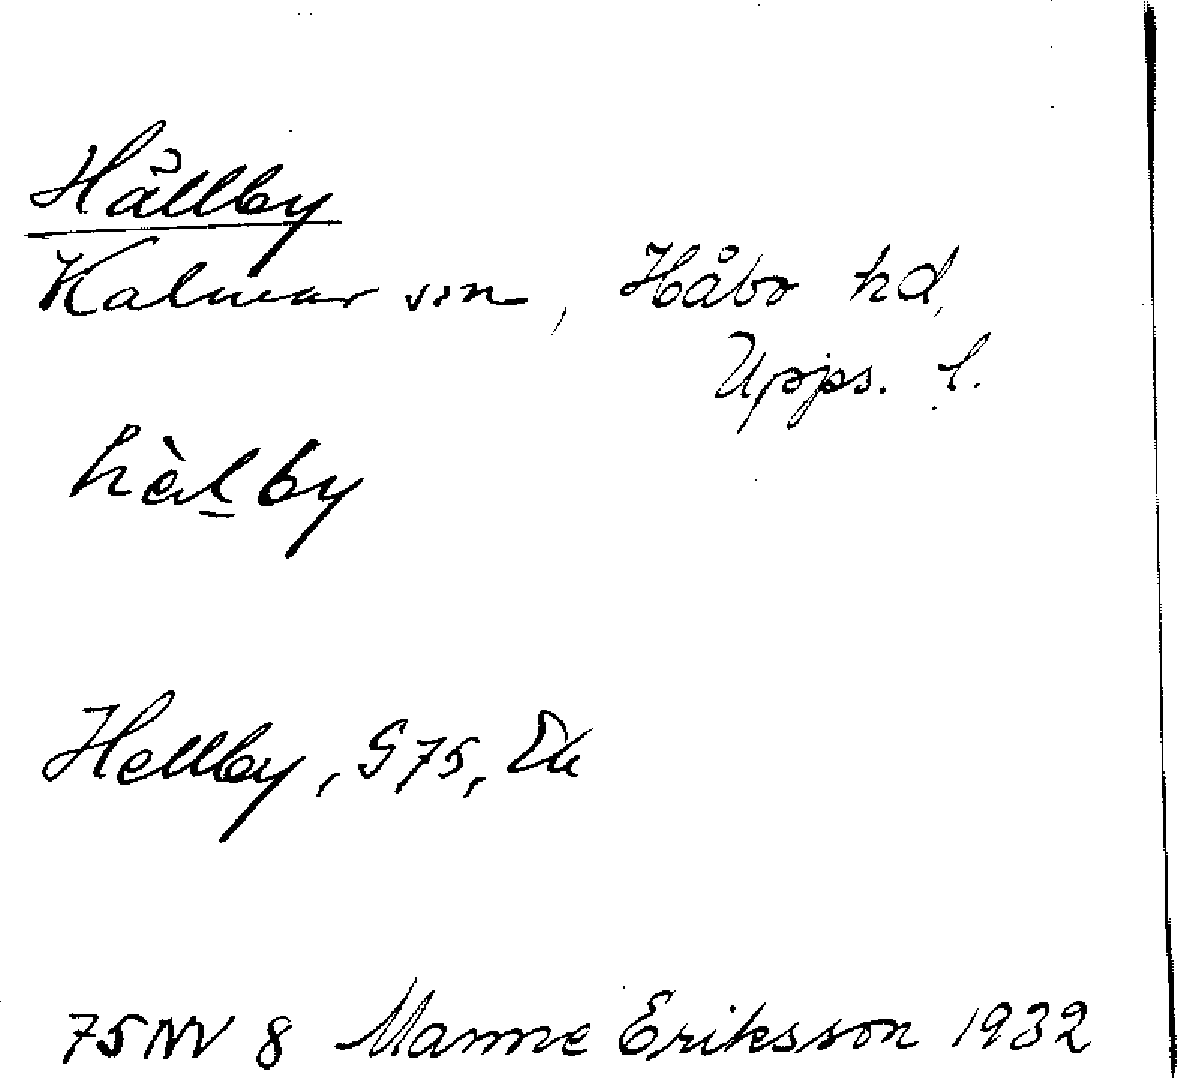 Hällby
Kalmar sn, Håbo hd,
Upps. l.
hὲl̠by
Hellby, G 75, Ek
75 NV 8 Manne Eriksson 1932